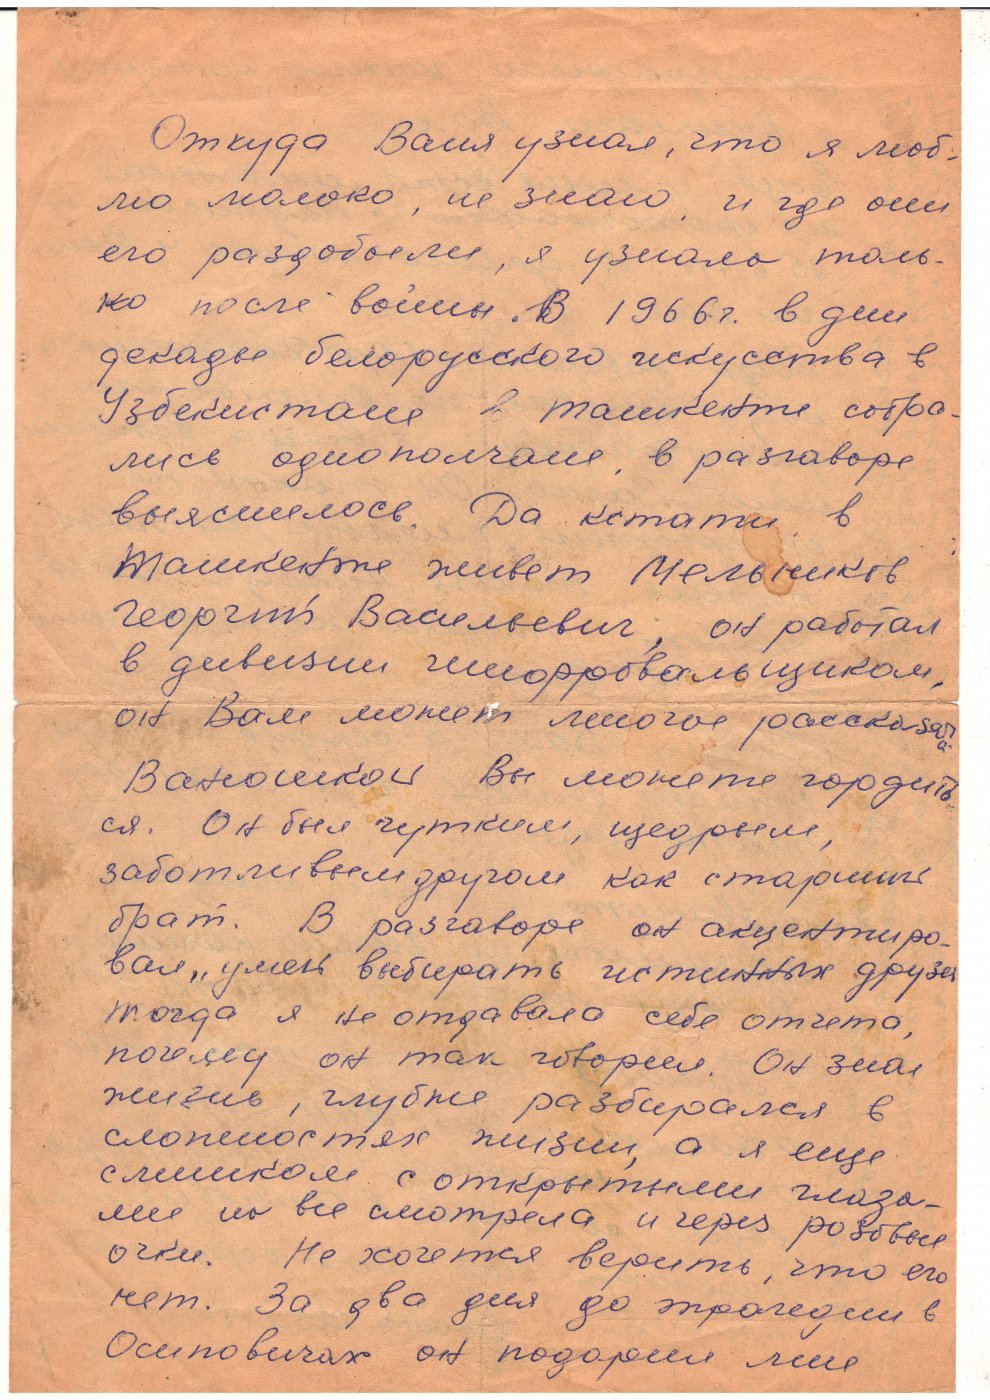 Откуда Ваня узнал, что я люб-
лю молоко, не знаю, и где они
его раздобыли, я узнала толь-
ко после войны. В 1966 г. в дни
декады белорусского искусства в
Узбекистане в Ташкенте собра-
лись однополчане, в разговоре
выяснилось. Да кстати, в
Ташкенте живет Мельников
Георгий Васильевич, он работал
в дивизии шифровальщиком,
он Вам может многое рассказать.
Ванюшкой Вы можете гордить-
ся. Он был чутким, щедрым,
заботливым другом как старший
брат. В разговоре он акцентиро-
вал „умей выбирать истинных друзей
тогда я не отдавала себе отчета,
почему он так говорил. Он знал
жизнь, глубже разбирался в
сложностях жизни, а я еще
слишком с открытыми глаза-
ми на все смотрела и через розовые
очки. Не хочется верить, что его
нет. За два дня до трагедии в
Осиповичах он подарил мне